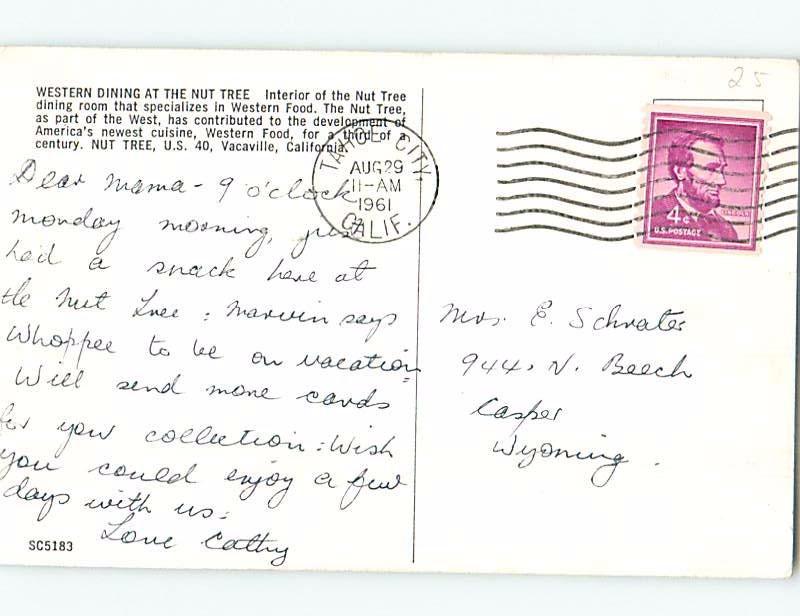 25
WESTERN DINING AT THE NUT TREE Interior of the Nut Tree
dining room that specializes in Western Food. The Nut Tree,
as part of the West, has contributed to the development of
America's newest cuisine, Western Food, for a third of a
century. NUT TREE, U.S. 40, Vacaville, California.
TAHOE CITY,
AUG 29
11-AM
1961
CALIF.
4¢
U.S. POSTAGE
Dear Mama - 9 o'clock
monday morning, just
had a snack here at
the Nut Tree : Marvin says
Whoppee to be on vacation
Will send more cards
for your collection : Wish
you could enjoy a few
days with us :
Love Cathy
Mrs. E. Schrater
944, N. Beech
Casper
Wyoming .
SC5183